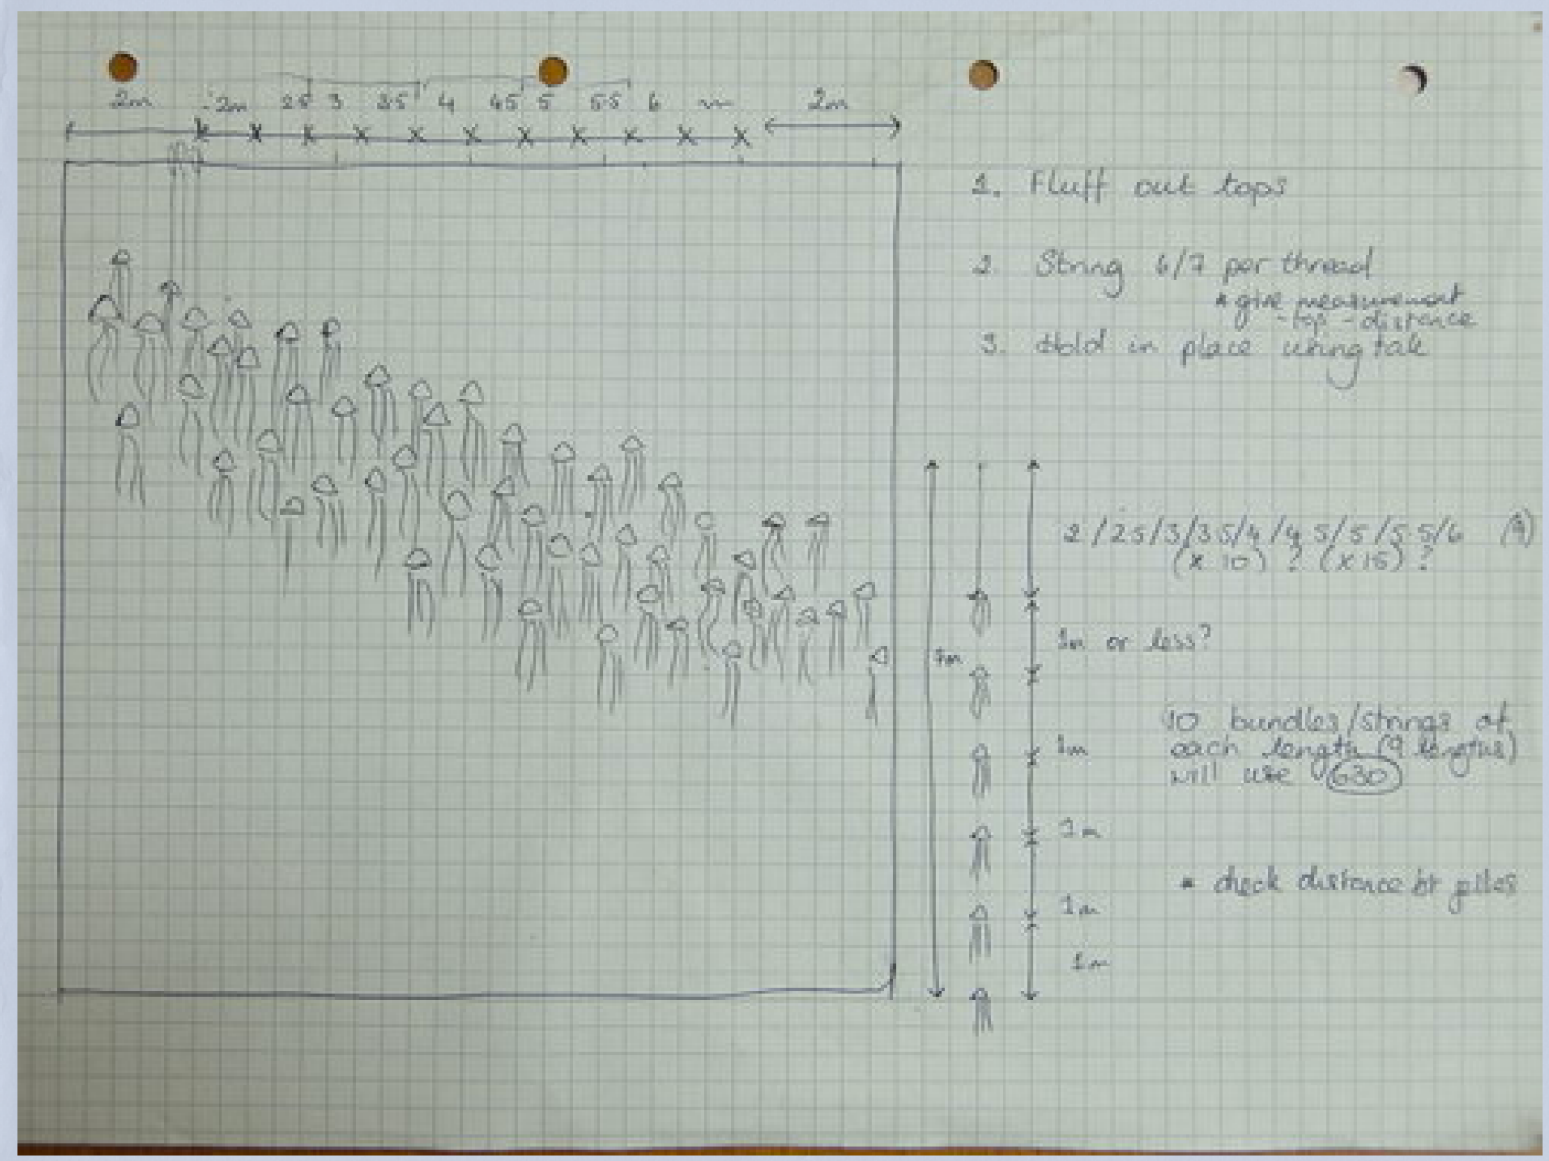 2m 2m 25 3 35 4 45 5 55 6 m 2m
1. Fluff out tops
2. String 6/7 per thread
* give measurement
- top - distance
3. Hold in place using
2/25/3/35/4/4 5/5/5 5/6 (9)
(x 10) ? (x 15) ?
1m or less?
7m
10 bundles/strings of
1m
each length (9 lengths)
will use 630
1m
* check distance bt piles
1m
1m